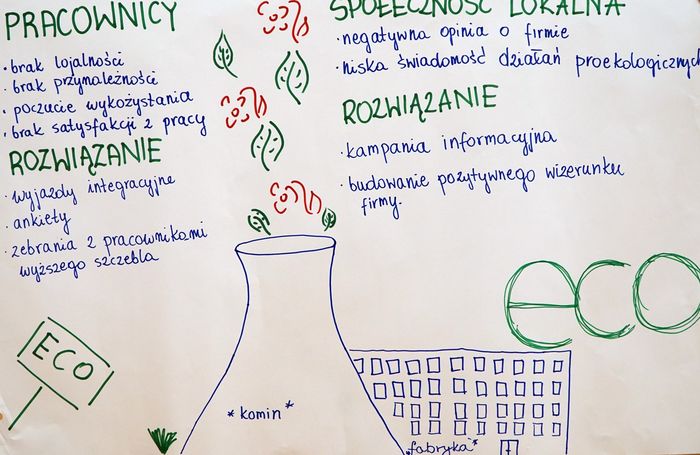 PRACOWNICY
· brak lojalności
· brak przynależności
· poczucie wykożystania
· brak satysfakcji z pracy
ROZWIĄZANIE
· wyjazdy integracyjne
· ankiety
· zebrania z pracownikami
wyższego szczebla
SPOŁECZNOŚĆ LOKALNA
· negatywna opinia o firmie
· niska świadomość działań proekologicznych
ROZWIĄZANIE
· kampania informacyjna
· budowanie pozytywnego wizerunku
firmy.
eco
ECO
*komin*
*fabryka*